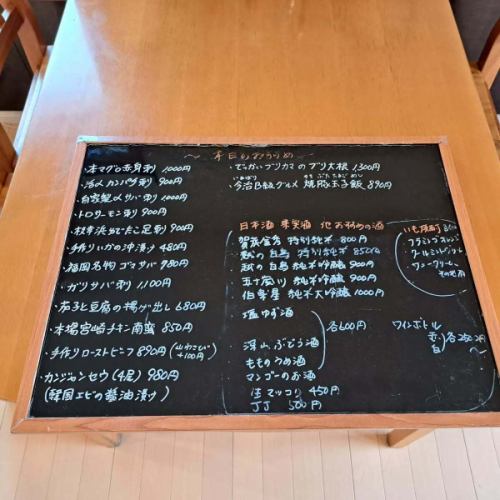 ～ 本日のおすすめ ～
・本マグロ赤身刺 1000円
・活〆カンパチ刺 900円
・自家製〆サバ刺 1000円
・トロサーモン刺 900円
ゆでたこ足刺 900円
・手作りいかの沖漬け 480円
・福岡名物 ゴマサバ 980円
・ガリサバ刺 1100円
・茄子と豆腐の揚げ出し 680円
・本場宮崎チキン南蛮 850円
・手作りローストビーフ 890円 (山わさび +100円)
・カンジャンセウ (4尾) 980円
(韓国エビの醤油漬け)
・でっかいブリカマのブリ大根 1300円
いまばり やきぶたたまごめし
・今治B級グルメ 焼豚玉子飯 890円
日本酒 果実酒 地 おすすめの酒
賀茂金秀 特別純米 800円
越の白鳥 特別純米 850円
・越の白鳥 純米吟醸 900円
・五十嵐川 純米吟醸 900円
・伯楽星 純米大吟醸 1000円
・塩ゆず酒
・深山ぶどう酒
もものうめ酒
マンゴーのお酒
各600円
生マッコリ 450円
JJ 500円
ワインボトル
赤 白 各